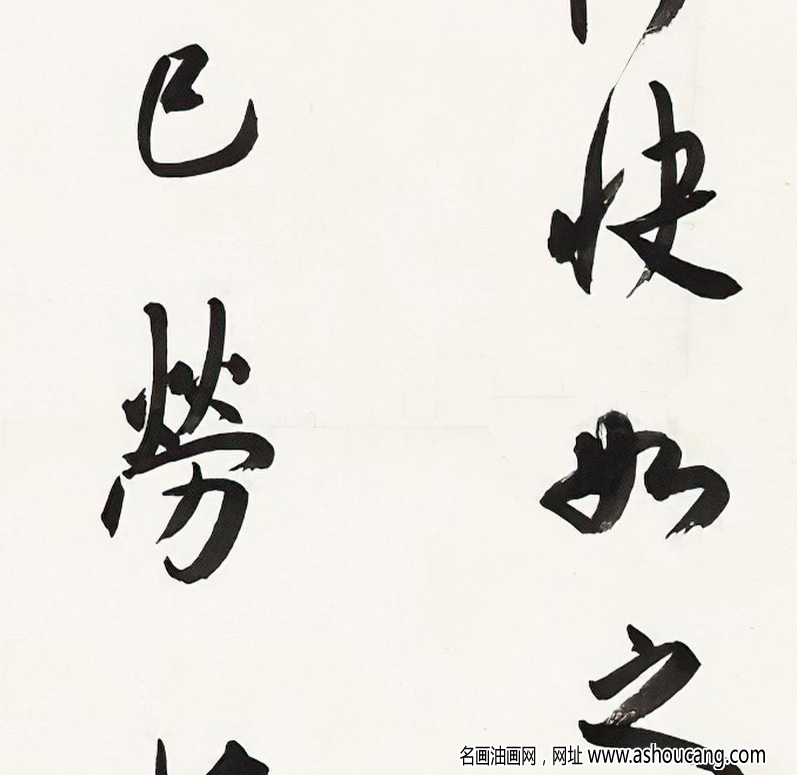 快如之
已勞
名画油画网，网址 www.ashoucang.com